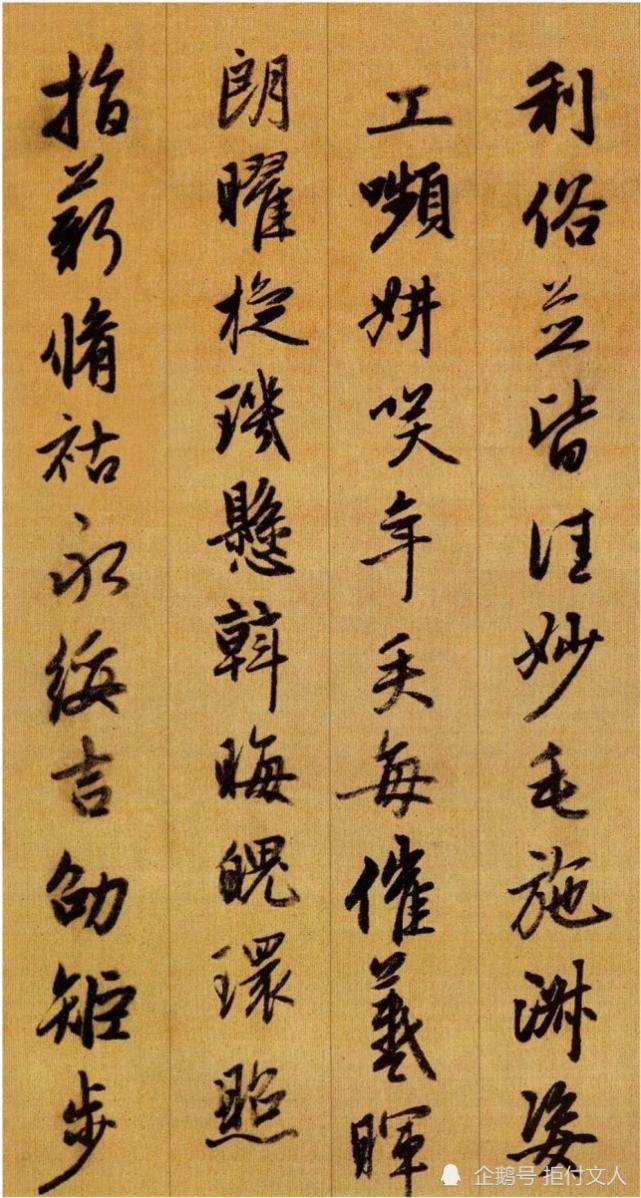 利俗並皆佳妙毛施淑姿
工嚬妍笑年矢每催羲暉
朗曜琁璣懸斡晦魄環照
指薪脩祜永綏吉劭矩步
企鹅号 拒付文人